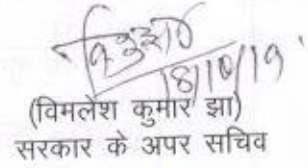 18/10/19
(विमलेश कुमार झा)
सरकार के अपर सचिव